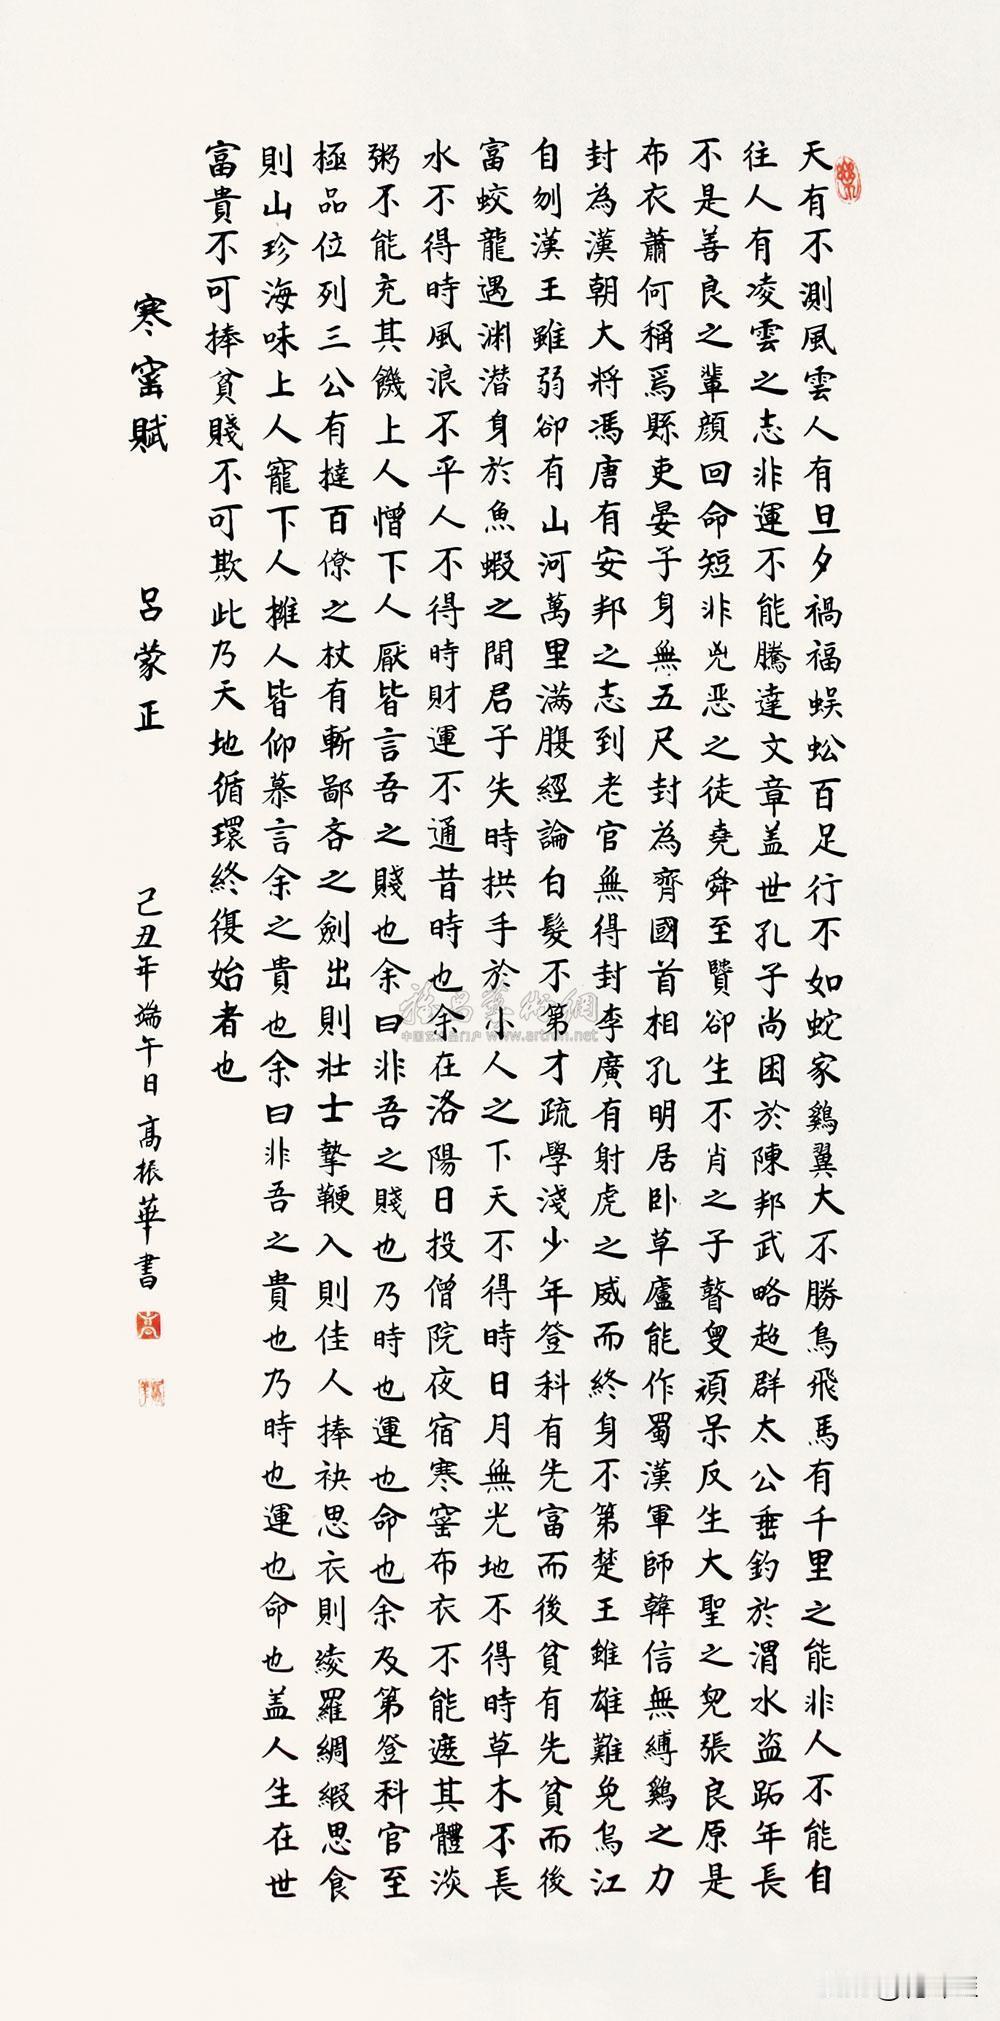 天有不測風雲人有旦夕禍福蜈蚣百足行不如蛇家鷄翼大不勝鳥飛馬有千里之能非人不能自
往人有凌雲之志非運不能騰達文章盖世孔子尚困於陳邦武略超群太公垂釣於渭水盗跖年長
不是善良之輩顔回命短非兇恶之徒堯舜至賢卻生不肖之子瞽叟頑呆反生大聖之兒張良原是
布衣蕭何稱爲縣吏晏子身無五尺封為齊國首相孔明居卧草廬能作蜀漢軍師韓信無縛鷄之力
封為漢朝大將馮唐有安邦之志到老官無得封李廣有射虎之威而終身不第楚王雖雄難免烏江
自刎漢王雖弱卻有山河萬里满腹經論白髮不第才疏學淺少年登科有先富而後貧有先貧而後
富蛟龍遇渊潜身於魚蝦之間君子失時拱手於小人之下天不得時日月無光地不得時草木不長
水不得時風浪不平人不得時財運不通昔時也余在洛陽日投僧院夜宿寒窰布衣不能遮其體淡
粥不能充其饑上人憎下人厭皆言吾之賤也余曰非吾之賤也乃時也運也命也余及第登科官至
極品位列三公有撻百僚之杖有斬鄙吝之劍出則壯士摯鞭入則佳人捧袂思衣則綾羅綢緞思食
則山珍海味上人寵下人擁人皆仰慕言余之貴也余曰非吾之貴也乃時也運也命也盖人生在世
富貴不可捧貧賤不可欺此乃天地循環終復始者也
寒窰賦 呂蒙正 己丑年端午日高振華書
中国艺术品门户 www.artron.net